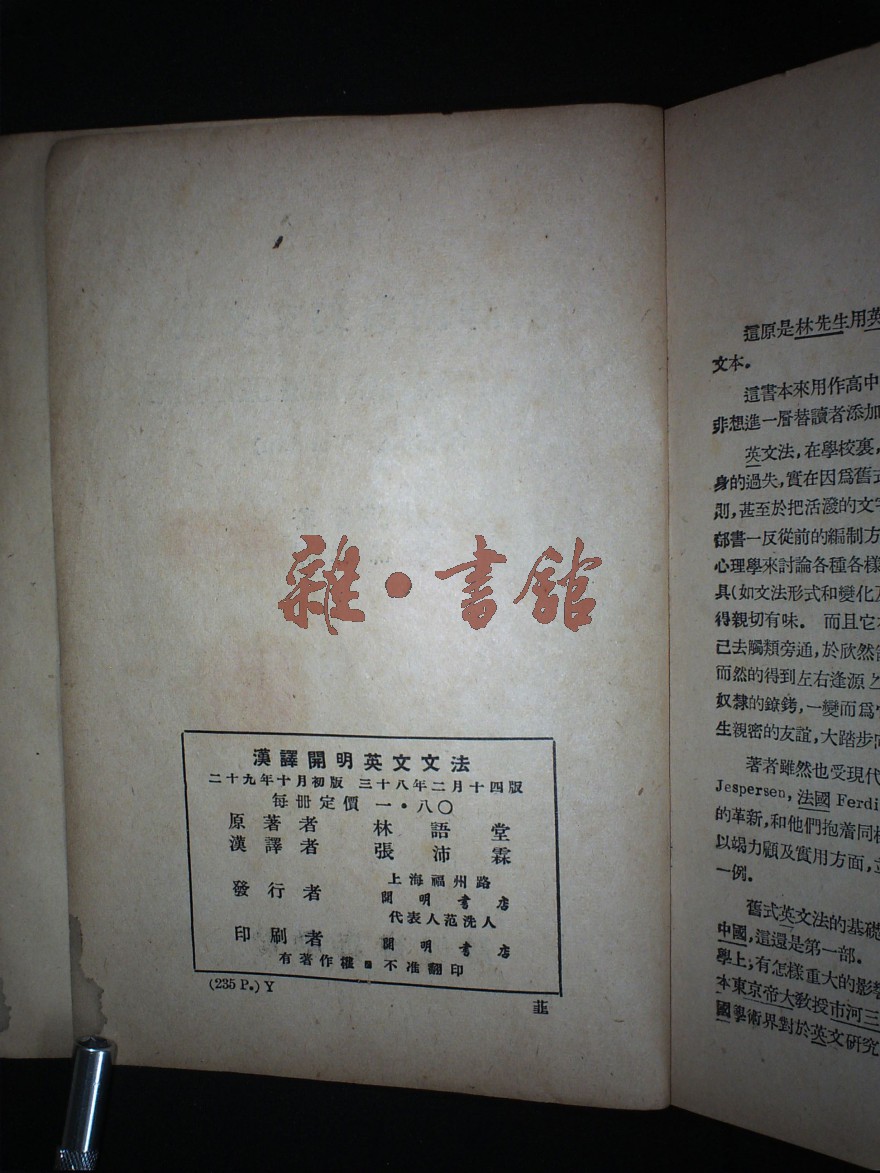 雜·書館
漢譯開明英文文法
二十九年十月初版 三十八年二月十四版
每冊定價 一·八〇
原著者 林語堂
漢譯者 張沛霖
發行者 上海福州路
開明書店
代表人范洗人
印刷者 開明書店
有著作權 不准翻印
(235 P.) Y
這原是林先生用英
文本。
這書本來用作高中
非想進一層替讀者添加
英文法，在學校裏，
身的過失，實在因爲舊式
則，甚至於把活潑的文字
部書一反從前的編制方
心理學來討論各種各樣
具(如文法形式和變化及
得親切有味。 而且它
己去觸類旁通，於欣然
而然的得到左右逢源之
奴隸的鐐銬，一變而爲
生親密的友誼，大踏步向
著者雖然也受現代
Jespersen, 法國 Ferdi
的革新，和他們抱着同
以竭力顧及實用方面，立
一例。
舊式英文法的基礎
中國，這還是第一部。
學上；有怎樣重大的影響
本東京帝大教授市河三
國學術界對於英文研究